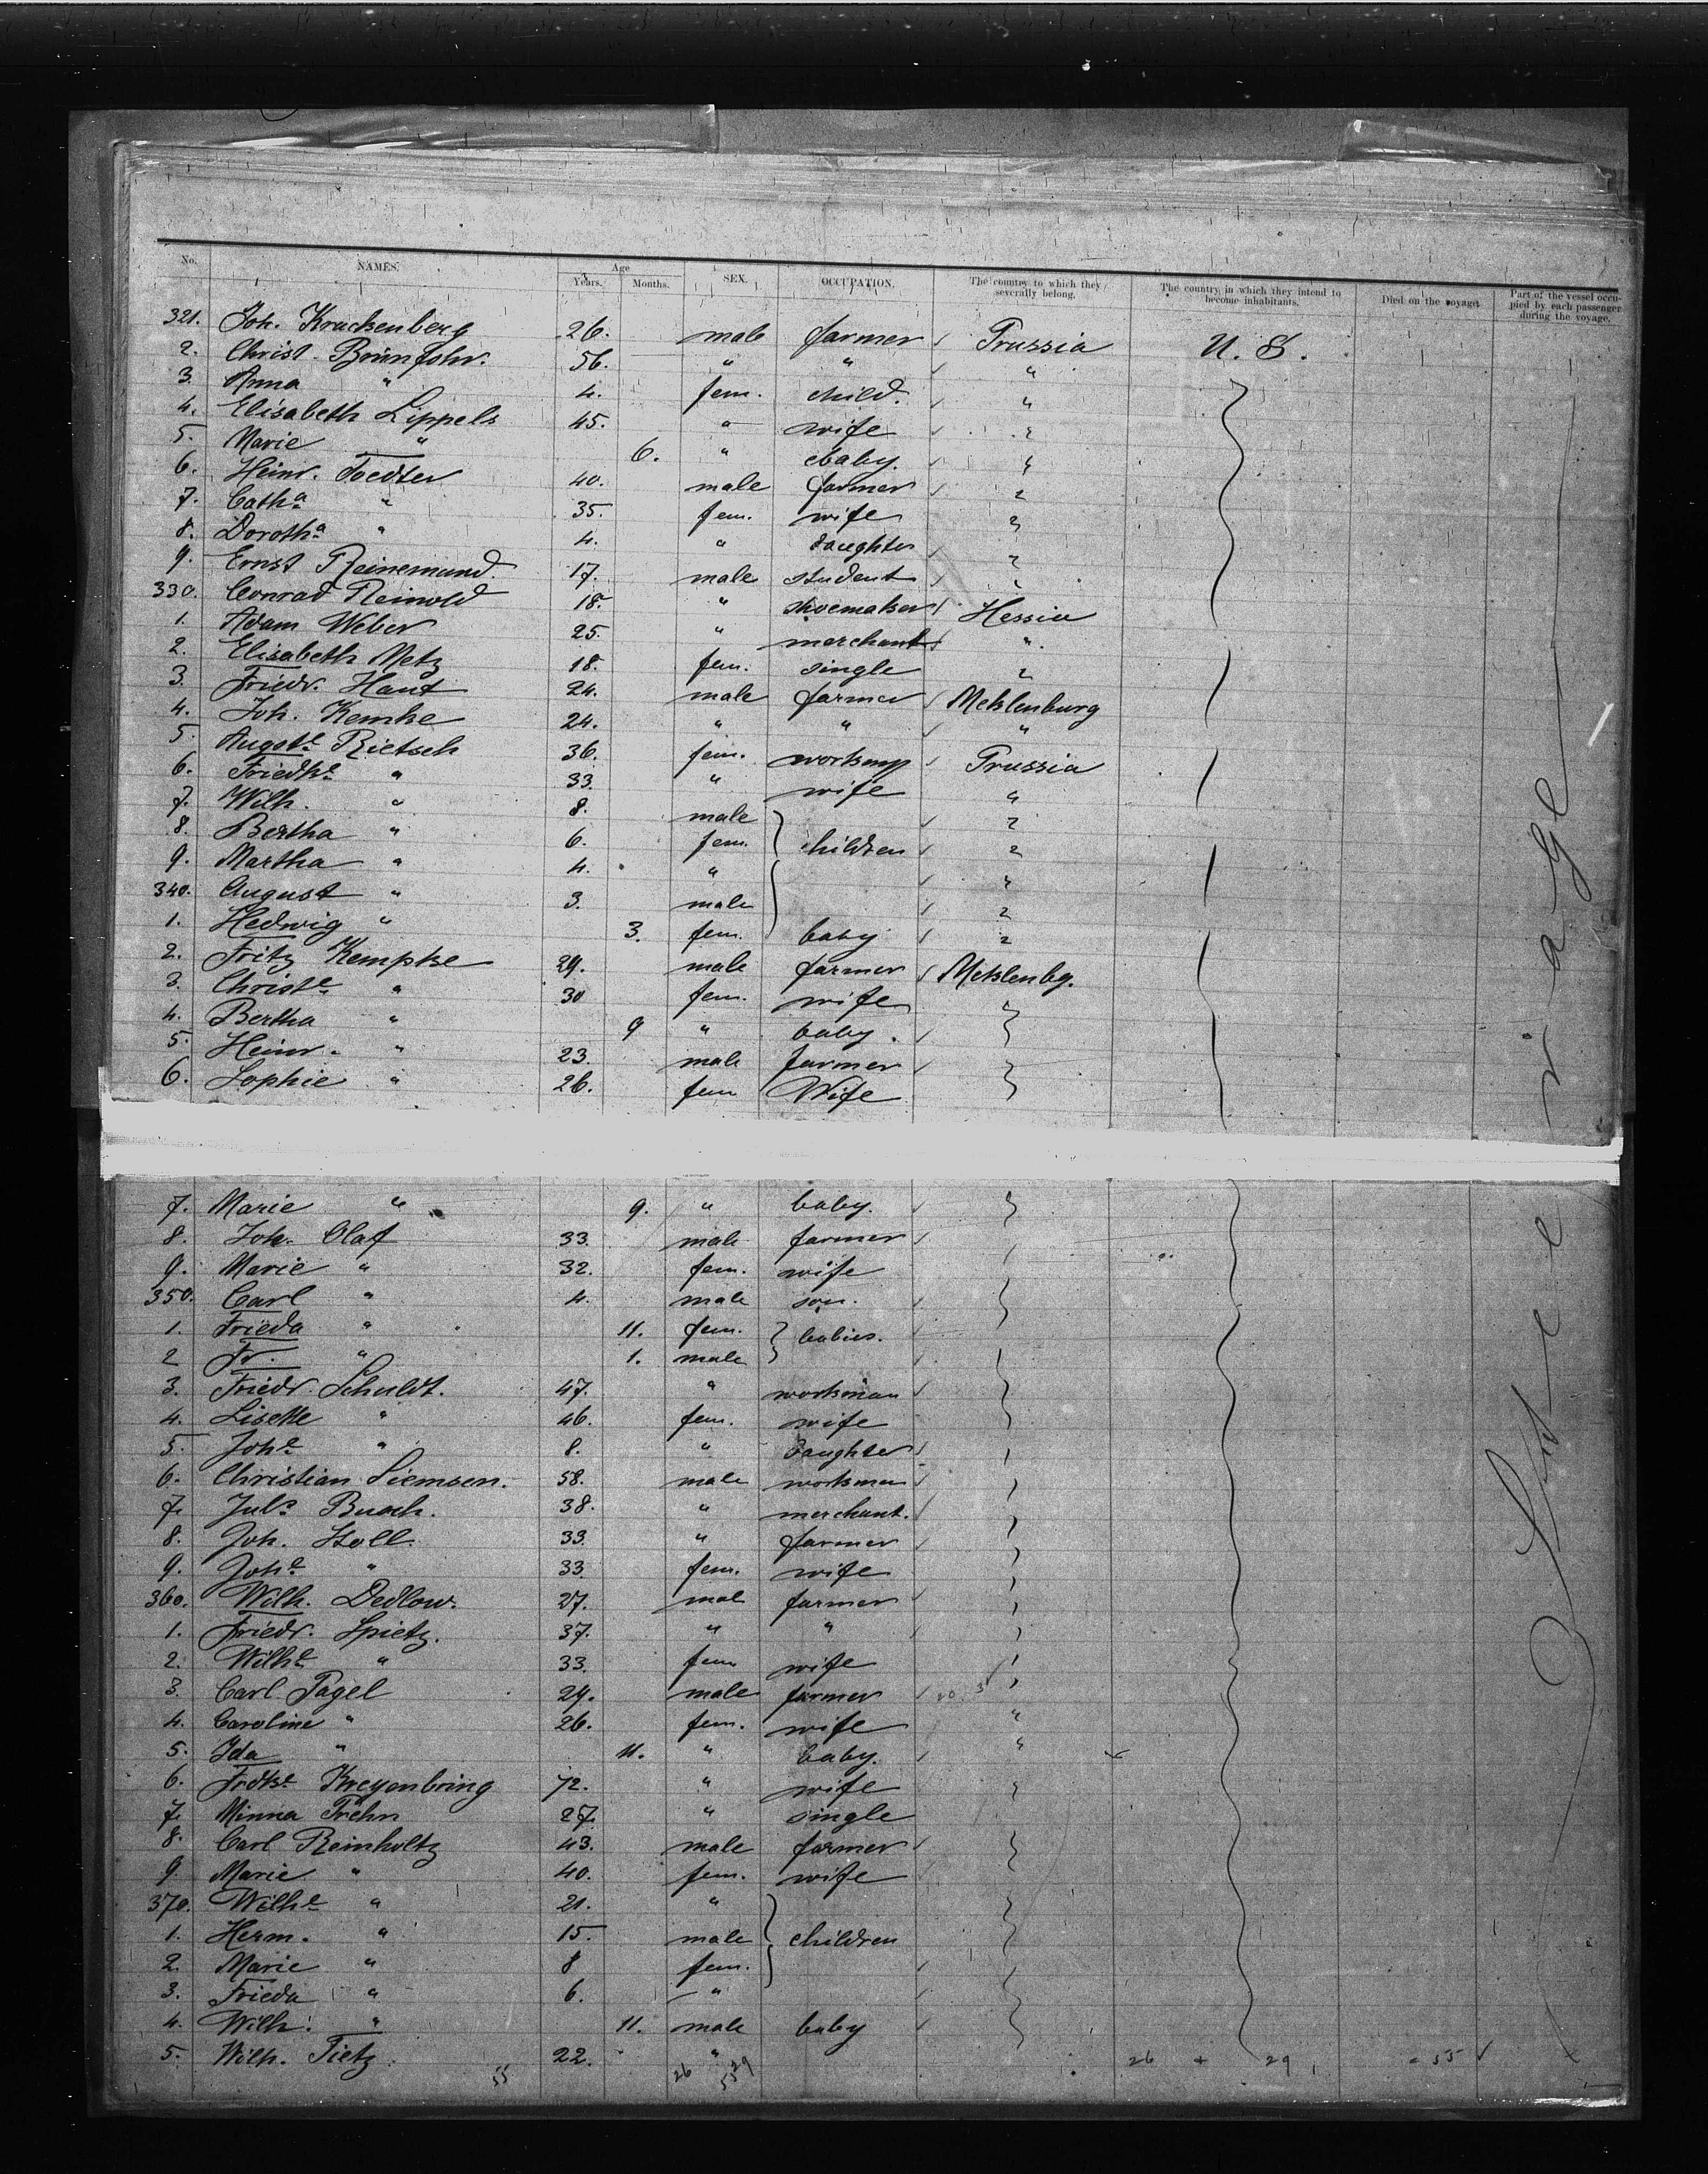 No. NAMES. Age Years. Months. SEX. OCCUPATION. The country to which they severally belong. The country in which they intend to become inhabitants. Died on the voyage. Part of the vessel occupied by each passenger during the voyage.
321. Joh. Krackenberg 26. male farmer Prussia U. S.
2. Christ. Brünjohr. 56. " " "
3. Anna " 4. fem. child. "
4. Elisabeth Lippels 45. " wife "
5. Marie " 6. " baby. "
6. Heinr. Toedter 40. male farmer "
7. Catha " 35. fem. wife "
8. Dorotha " 4. " daughter "
9. Ernst Reinemund. 17. male student "
330. Conrad Reinold 18. " shoemaker Hessia
1. Adam Weber 25. " merchant "
2. Elisabeth Metz 18. fem. single "
3. Friedr. Haut 24. male farmer Meklenburg
4. Joh. Kemke 24. " " "
5. Auguste Rietsch 36. fem. Prussia
6. Friedke " 33. " wife "
7. Wilh. " 8. male "
8. Bertha " 6. fem. children "
9. Martha " 4. " "
340. August " 3. male "
1. Hedwig " 3. fem. baby "
2. Fritz Kempke 29. male farmer Meklenbg.
3. Christe " 30 fem. wife
4. Bertha " 9 " baby.
5. Heinr. " 23. male farmer
6. Sophie " 26. fem Wife
7. Marie " 9. " baby.
8. Joh. Olaf 33. male farmer
9. Marie " 32. fem. wife
350. Carl " 4. male son.
1. Frieda " 11. fem. babies.
2 Fr. " 1. male
3. Friedr. Schuldt. 47. " workman
4. Lisette " 46. fem. wife
5. Johe " 8. " daughter
6. Christian Siemsen. 58. male workman
7. Juls Busch. 38. " merchant.
8. Joh. Stoll. 33. " farmer
9. Johe " 33. fem. wife
360. Wilh. Dedlow. 27. male farmer
1. Friedr. Spietz. 37. " "
2. Wilhe " 33. fem wife
3. Carl Pagel 29. male farmer
4. Caroline " 26. fem. wife "
5. Ida " 11. " baby. "
6. Frdke Kreyenbring 72. " wife
7. Minna Frehn 27. " single
8. Carl Reinholtz 43. male farmer
9. Marie " 40. fem. wife
370. Wilhe " 21. "
1. Herm. " 15. male children
2. Marie " 8 fem.
3. Frieda " 6. "
4. Wilh. " 11. male baby
5. Wilh. Tietz 22. "
55 26 29 26 + 29 = 55
Steerage